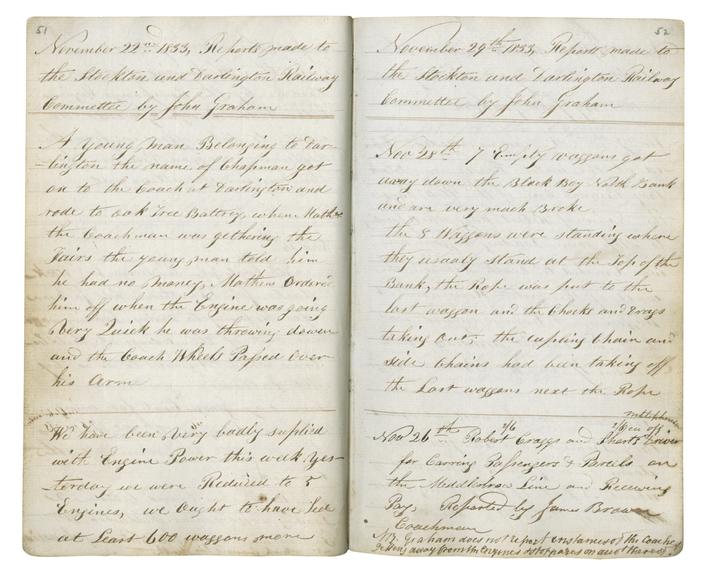 51
November 22nd 1833, Reports made to
the Stockton and Darlington Railway
Committee by John Graham
A Young Man Belonging to Dar-
-lington the name of Chapman got
on to the Coach at Darlington and
rode to oak Tree Battrey, when Mathw
the Coachman was gethering the
Fairs the young man told him
he had no money, Mathew Ordered
him off when the Engine was going
Very Quick he was throwing down
and the Coach Wheels Passed Over
his arm
We have been Very badly supplied
with Engine Power this week yes-
-terday we were Reduced to 5
Engines, we ought to have Led
at Least 600 waggons more
52
November 29th 1833, Reports made to
the Stockton and Darlington Railway
Committee by John Graham
Nov 28th 7 Empty waggons got
away down the Black Boy North Bank
and are very much Broke
the 8 Waggons were standing where
they usualy Stand at the Top of the
Bank, the Rope was put to the
last waggon and the Chocks and Drags
taking out, the cupling Chain and
side Chains had been taking off
the Last waggons next the Rope
2/6
Nov 26th Robert Craggs and
for Carring Passengers & Parcels on
the Middlesbro Line and Receiving
Pay, Reported by James Brown
Coachman
Graham does not report instances of the Coaches
getting away from the Engines &